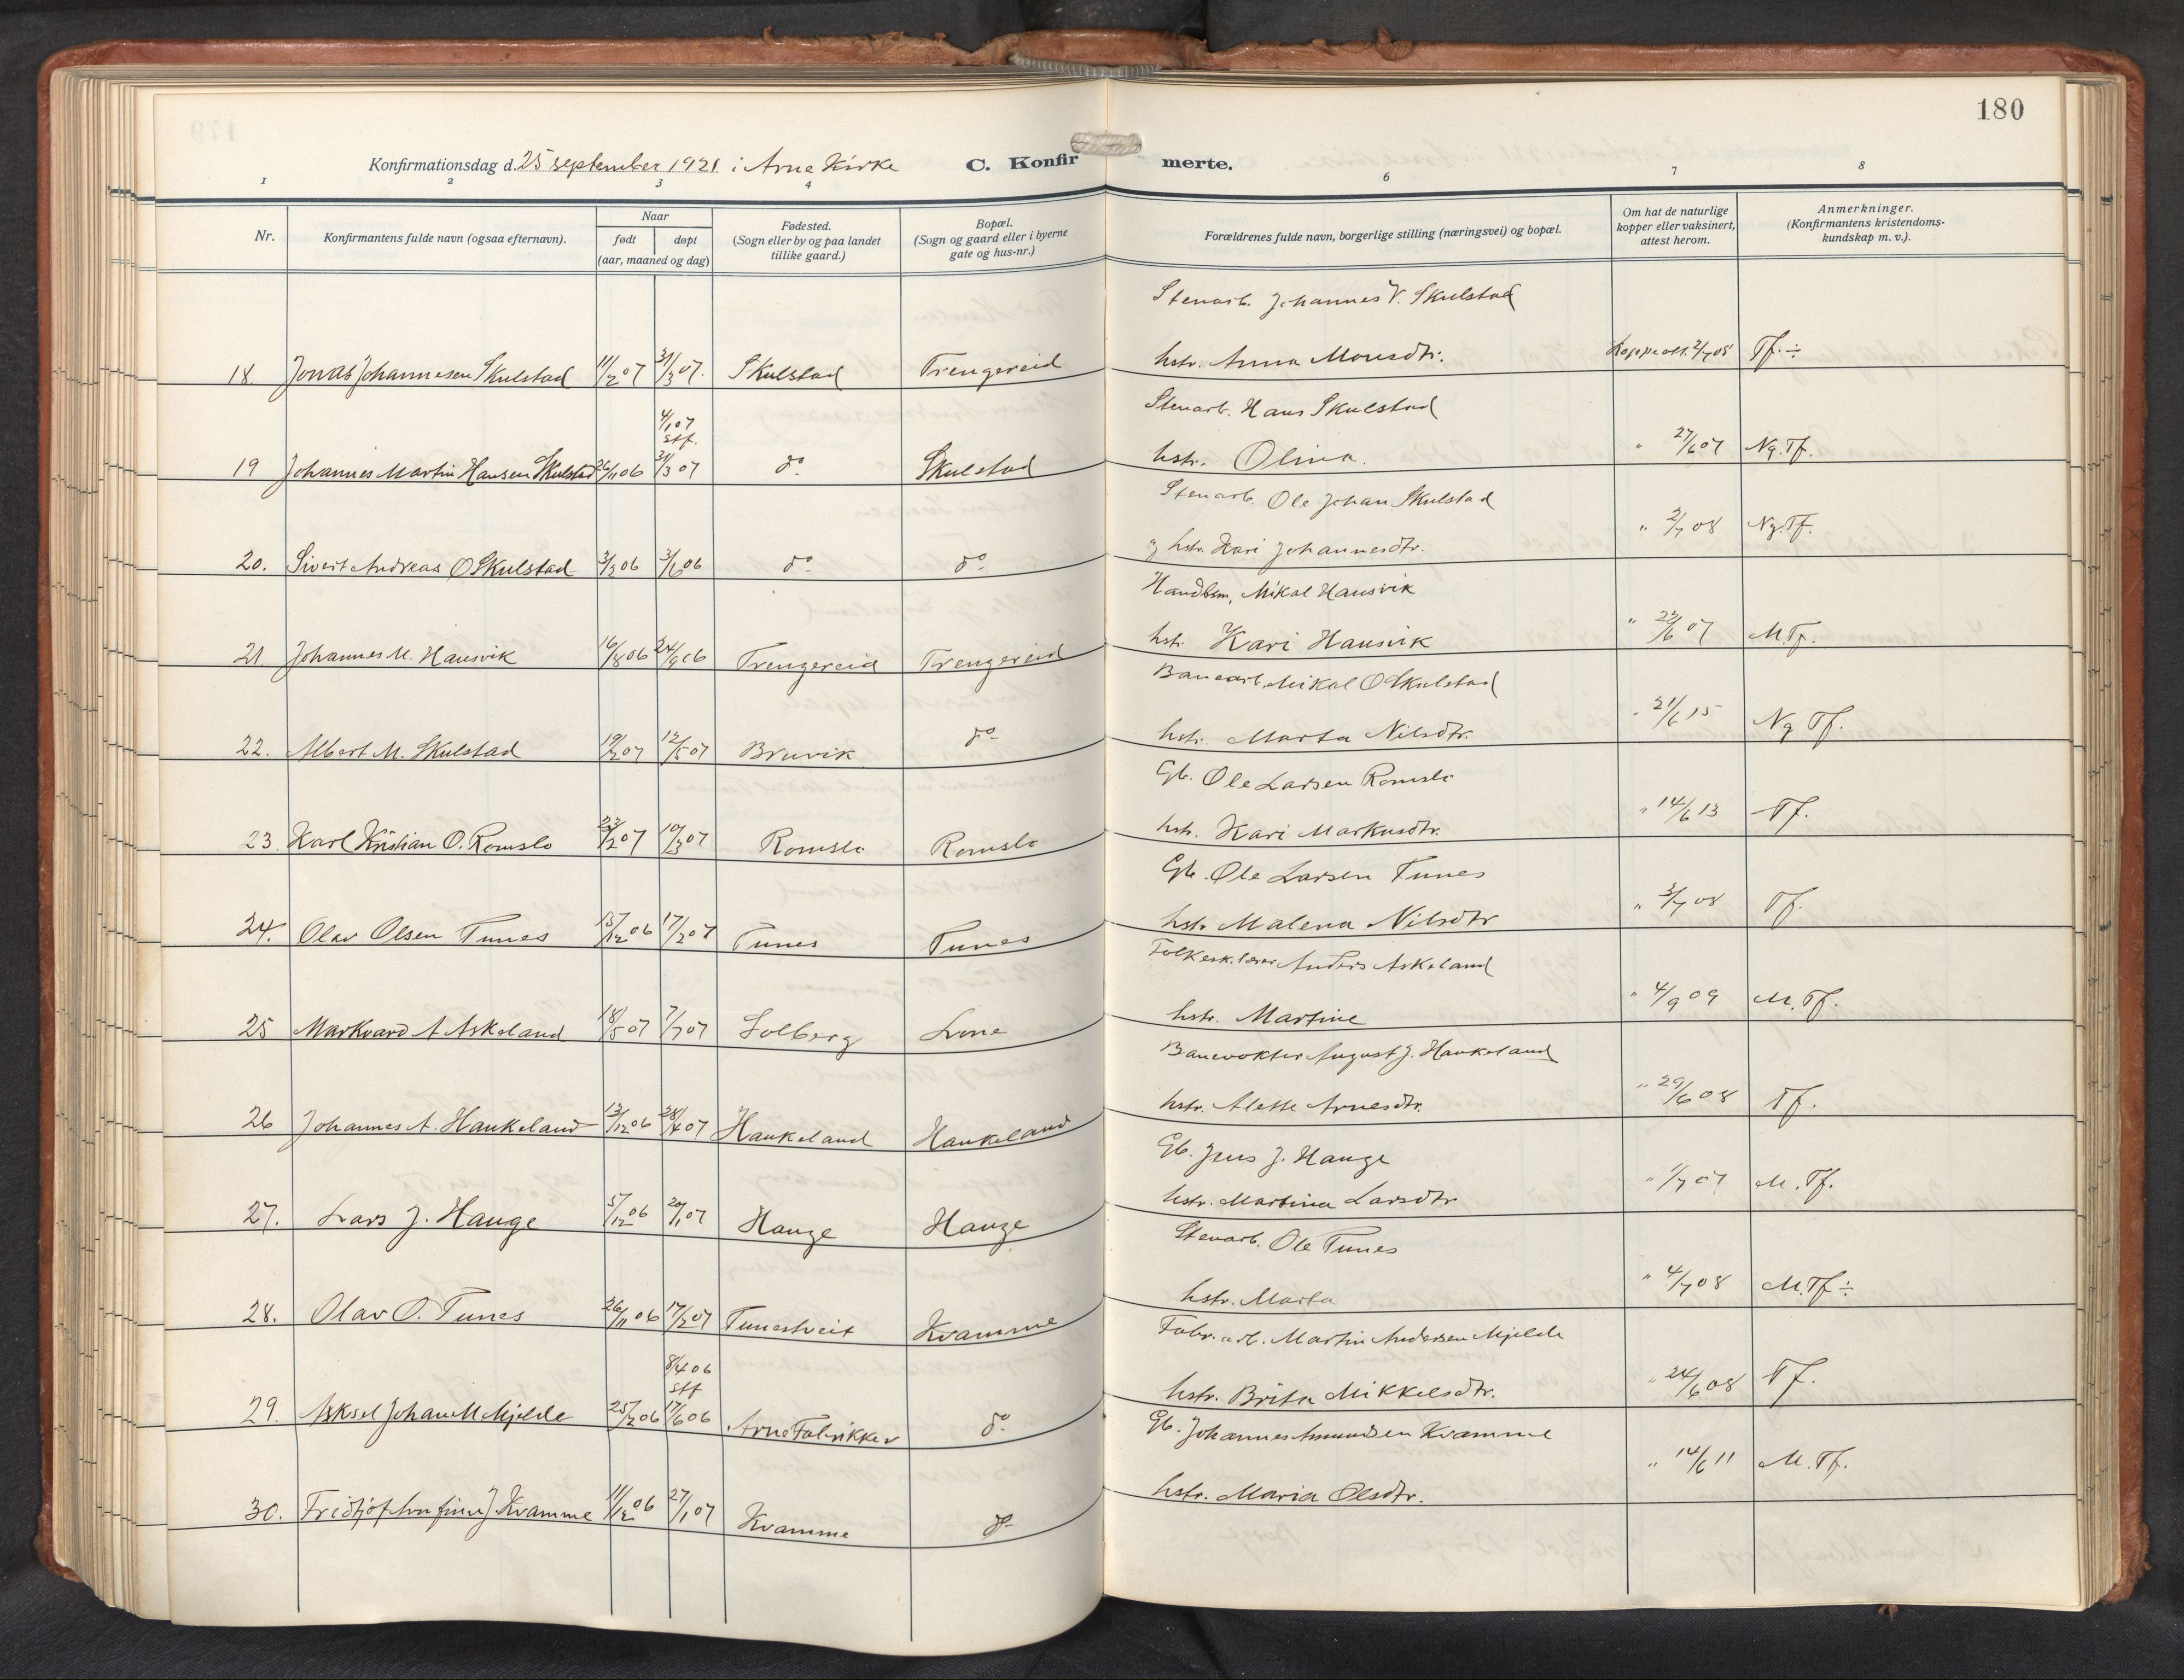 180
Konfirmationsdag d. 25 september 1921 i Arne Kirke C. Konfir merte.
1 2 3 4 6 7 8
Nr. Konfirmantens fulde navn (ogsaa efternavn). Naar født døpt (aar, maaned og dag) Fødested. (Sogn eller by og paa landet tillike gaard.) Bopæl. (Sogn og gaard eller i byerne gate og hus-nr.) Forældrenes fulde navn, borgerlige stilling (næringsvei) og bopæl. Om hat de naturlige kopper eller vaksinert, attest herom. Anmerkninger. (Konfirmantens kristendoms-kundskap m. v.).
Stenarb. Johannes V. Skulstad
18. Jonas Johannesen Skulstad 11/2 07 31/3 07. Skulstad Trengereid hstr. Anna Monsdtr. Koppeatt. 2/7 08 Tf. ÷
4/1 07 stf. Stenarb. Hans Skulstad
19 Johannes Martin Hansen Skulstad 26/11 06 31/3 07 do Skulstad hstr. Olina. " 27/6 07 Ng. Tf.
Stenarb. Ole Johan Skulstad
20. Sivert Andreas O Skulstad 3/3 06 3/6 06 do do og hstr. Kari Johannesdtr. " 2/7 08 Ng. Tf.
Handlsm. Mikal Hausvik
21 Johannes M. Hausvik 16/8 06 24/9 06 Trengereid Trengereid hstr. Kari Hausvik " 22/6 07 M Tf.
Banearb. Mikal O Skulstad
22. Albert M. Skulstad 19/2 07 12/5 07 Bruvik do hstr. Marta Nilsdtr. " 21/6 15 Ng Tf.
Gb. Ole Larsen Romslo
23. Karl Kristian O. Romslo 23/2 07 10/3 07 Romslo Romslo hstr. Kari Markusdtr. " 14/6 13 Tf.
Gb. Ole Larsen Tunes
24. Olav Olsen Tunes 15/12 06 17/2 07 Tunes Tunes hstr Malena Nilsdtr " 3/7 08 Tf.
Folkesk.lærer Anders Askeland
25 Markvard A Askeland 18/5 07 7/7 07 Solberg Lone hstr. Martine " 4/9 09 M. Tf.
Banevokter August J. Haukeland
26 Johannes A. Haukeland 13/12 06 28/4 07 Haukeland Haukeland hstr. Alette Arnesdtr. " 29/6 08 Tf.
Gb. Jens J. Hauge
27. Lars J. Hauge 5/12 06 20/1 07 Hauge Hauge hstr. Martina Larsdtr " 1/7 07 M. Tf.
Stenarb. Ole Tunes
28. Olav O. Tunes 26/11 06 17/2 07 Tunestveit Kvamme hstr. Marta " 4/7 08 M. Tf ÷
8/4 06 stf Fabr. arb. Martin Andersen Mjelde
29. Aksel Johan M Mjelde 25/2 06 17/6 06 Arne Fabrikker do hstr. Brita Mikkelsdtr. " 24/6 08 Tf.
Gb. Johannes Amundsen Kvamme
30. Fridtjof J. Kvamme 11/12 06 27/1 07 Kvamme do hstr. Maria Olsdtr. " 14/6 11 M. Tf.